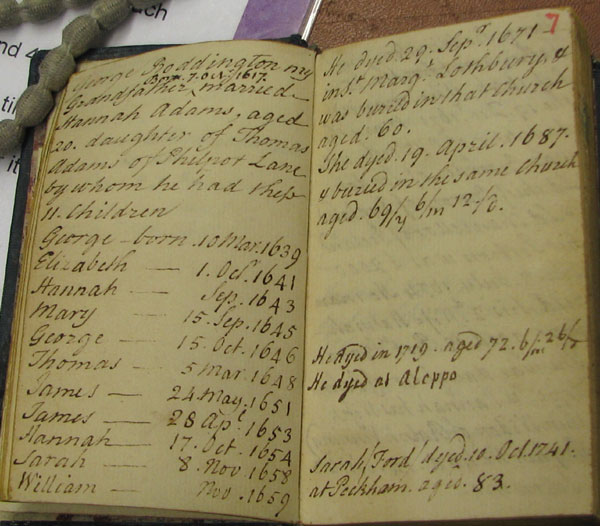 ch
nd 4
ti
it
George Boddington my
Born. 7. Oct. 1617.
Grandfather, married
Hannah Adams, aged
20. daughter of Thomas
Adams of Philpot Lane
by whom he had these
11. Children
George - born. 10 Mar. 1639
Elizabeth — 1. Oct. 1641
Hannah — Sep. 1643
Mary — 15. Sep. 1645
George — 15. Oct. 1646
Thomas — 5 Mar. 1648
James — 24 May. 1651
James — 28 Apl. 1653
Hannah — 17. Oct. 1654
Sarah — 8. Nov 1658
William — Nov. 1659
7
He dyed. 29. Sepr. 1671
in St. Margt. Lothbury, &
was buried in that Church
aged. 60.
She dyed. 19. April. 1687.
& buried in the same Church
aged. 69/y 6/m 12/d.
He dyed in 1719. aged 72. 6/m 26/d
He dyed at Aleppo
Sarah, 'Ford' dyed. 10. Oct. 1741.
at Peckham. aged. 83.